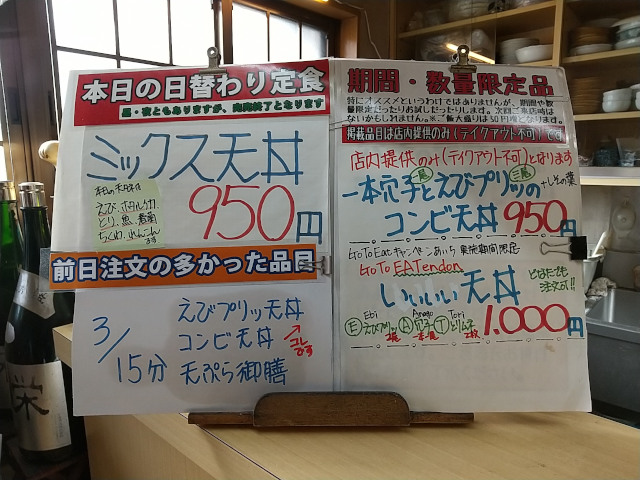 本日の日替わり定食
昼・夜ともありますが、完売終了となります
ミックス天丼
本日の天ダネは
えび、ホタルイカ
とり、魚、春菊
ちくわ、れんこん
です
950円
前日注文の多かった品目
3/15分
えびプリッ天丼
コンビ天丼
コレです
天ぷら御膳
期間・数量限定品
特にオススメというわけではありませんが、期間や数
量限定だったりお試しだったりします。次回ご来店時は
ないかもしれません。※ご飯大盛りは50円増となります
掲載品目は店内提供のみ(テイクアウト不可)です
店内提供のみ(テイクアウト不可)となります
一本穴子とえびプリッの
一尾
三尾
+しその葉
コンビ天丼 950円
Go To Eatキャンペーンあいち 実施期間限定
Go To EATendon
いいいい天丼
どなたでも
注文可!!
Ebi
Anago
Tori
E えびプリッ 2尾
A 穴子 一本一尾
T とりムネ 2枚
1.000円
栄